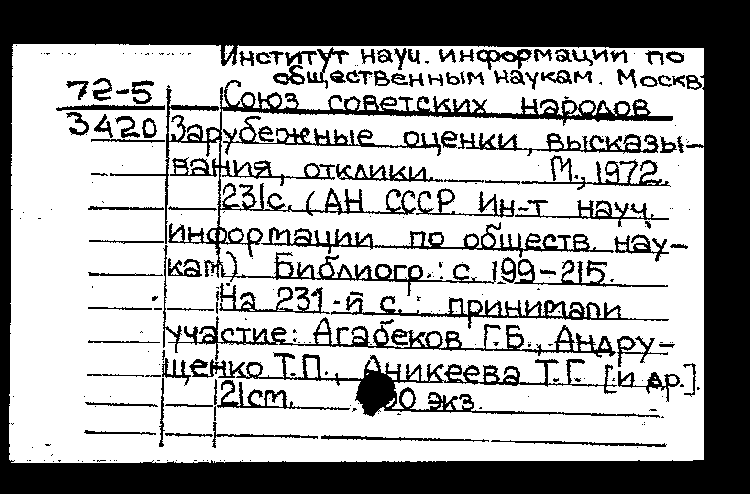 Институт науч. информации по
общественным наукам. Москва
72-5 Союз советских народов
3420 Зарубежные оценки, высказы-
вания, отклики. М., 1972.
231с. (АН СССР. Ин-т науч.
информации по обществ. нау-
кам). Библиогр.: с. 199-215.
На 231-й с.: принимали
участие: Агабеков Г.Б., Андру-
щенко Т.П., Аникеева Т.Г. [и др.].
21cm. 00 экз.